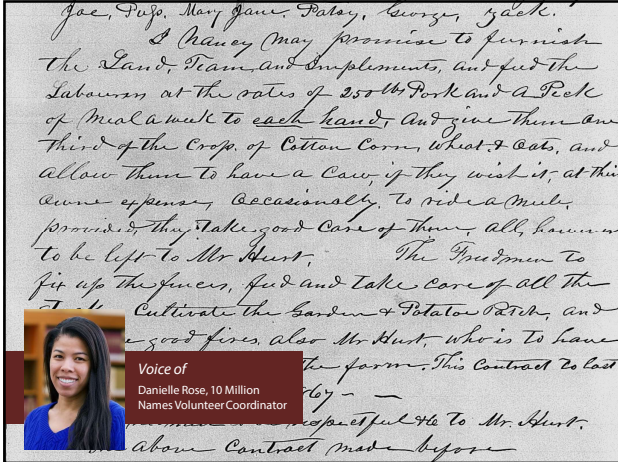 Joe, Pugs. Mary Jane. Patsy, George, Zack.
I Nancy May promise to furnish
the Land, Team, and Implements, and feed the
Labourers at the rates of 250 lbs Pork and a Peck
of Meal a week to each hand, and give them one
third of the Crop, of Cotton Corn, Wheat & Oats, and
allow them to have a Cow, if they wish it, at their
owne expense, Occasionally, to ride a Mule,
provided, they take good care of them, all, however
to be left to Mr Hurt. The Freedmen to
fix up the fences, feed and take care of all the
Cultivate the Garden & Potatoe Patch, and
good fires, also Mr Hurt, who is to have
the farm. This Contract to last
67 - -
respectful &c to Mr. Hurt.
above Contract made before
Voice of
Danielle Rose, 10 Million
Names Volunteer Coordinator